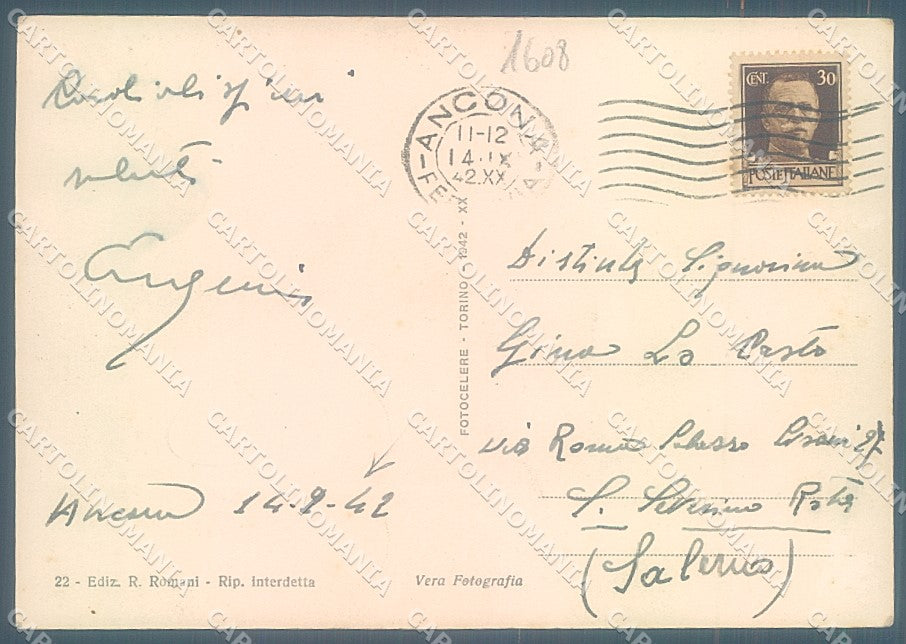 1608
CENT. 30
POSTE ITALIANE
ANCONA
11-12
14·IX
42.XX
Cordialissimi
saluti
Eugenio
Distinta Signorina
Gina Lo
Via Roma Palazzo
S. Severino Rota
(Salerno)
Ancona 14-9-42
FOTOCELERE - TORINO 1942 - XX
22 - Ediz. R. Romani - Rip. interdetta
Vera Fotografia
CARTOLINOMANIA